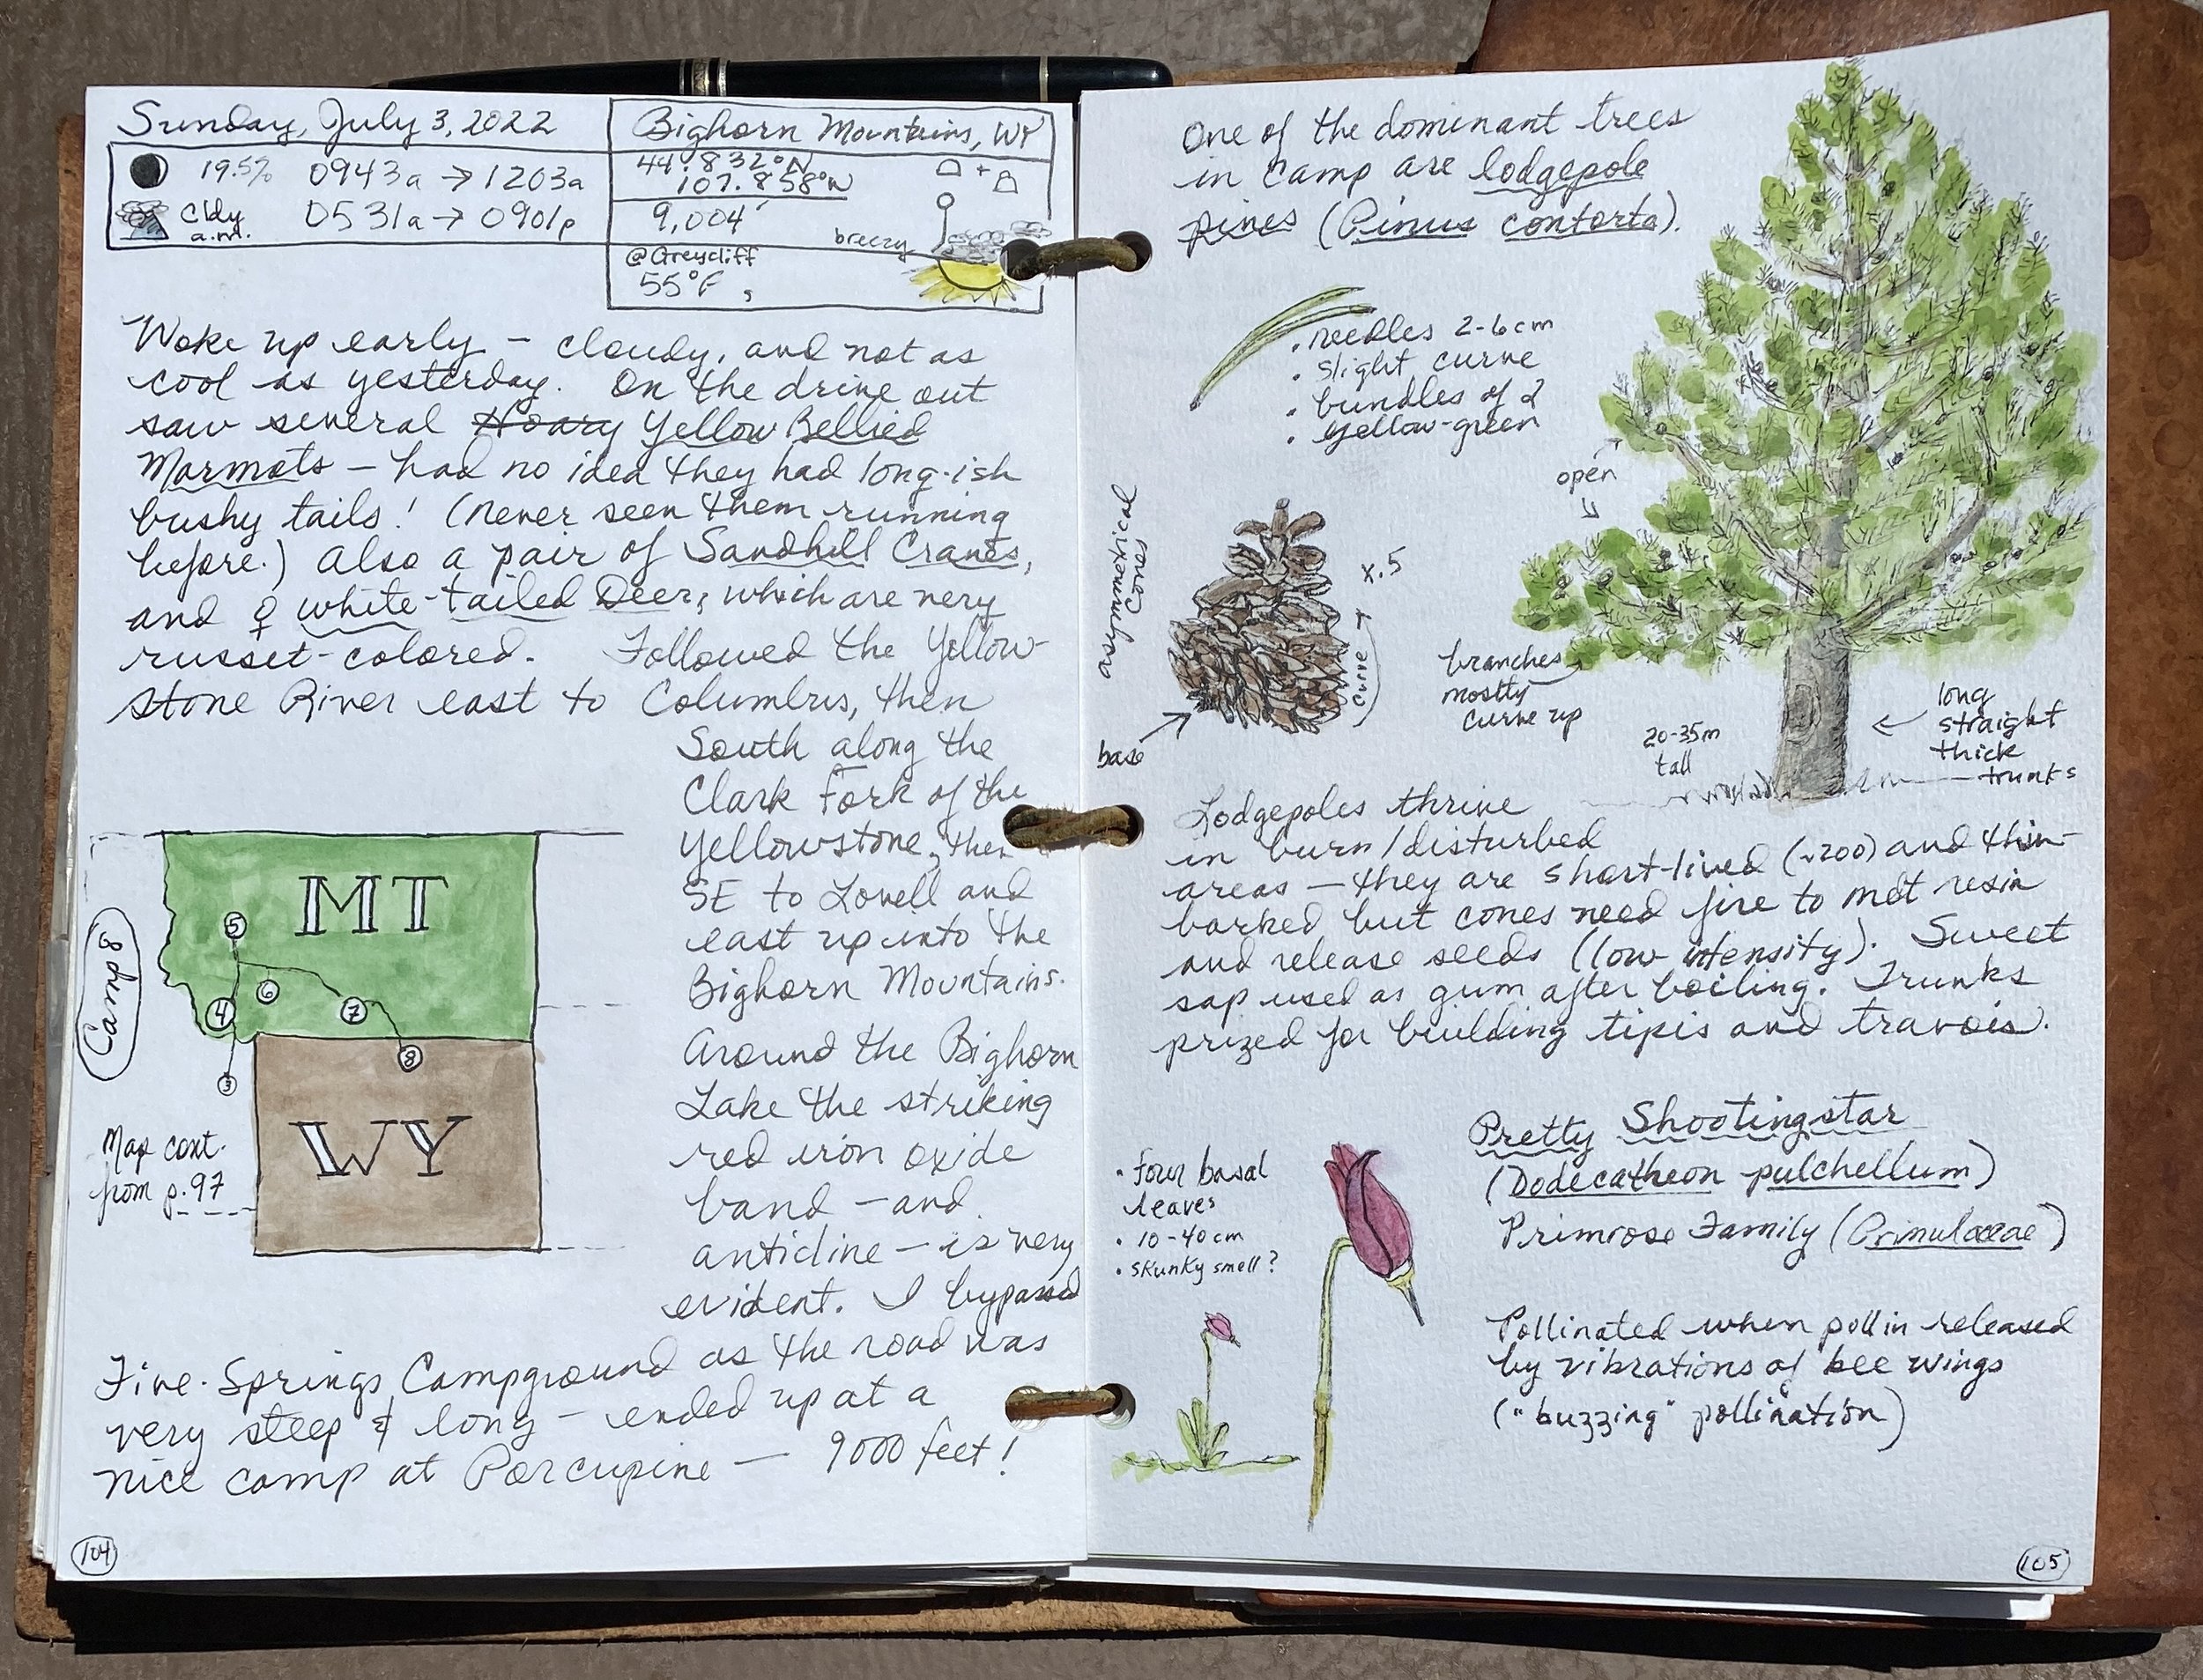 Sunday, July 3, 2022
19.5% 0943a → 1203a
Cldy a.m. 0531a → 0901p
Bighorn Mountains, WY
44.832°N
107.858°W
9,004'
breezy
@Greycliff
55°F,
Woke up early – cloudy, and not as
cool as yesterday. On the drive out
saw several Hoary Yellow Bellied
Marmots – had no idea they had long-ish
bushy tails! (Never seen them running
before.) Also a pair of Sandhill Cranes,
and ♀ white-tailed Deer, which are very
russet-colored. Followed the Yellow-
stone River east to Columbus, then
South along the
Clark Fork of the
Yellowstone, then
SE to Lovell and
east up into the
Bighorn Mountains.
Around the Bighorn
Lake the striking
red iron oxide
band – and
anticline – is very
evident. I bypassed
Five-Springs Campground as the road was
very steep & long – ended up at a
nice camp at Porcupine – 9000 feet!
Camp 8
MT
5
6
4
7
8
3
WY
Map cont.
from p.97
104
One of the dominant trees
in camp are lodgepole
pines (Pinus contorta).
• needles 2-6cm
• slight curve
• bundles of 2
• yellow-green
open
asymmetrical
cones
x.5
curve
base
branches
mostly
curve up
20-35m
tall
long
straight
thick
trunks
Lodgepoles thrive
in burn/disturbed
areas – they are short-lived (~200) and thin-
barked but cones need fire to melt resin
and release seeds (low intensity). Sweet
sap used as gum after boiling. Trunks
prized for building tipis and travois.
Pretty Shootingstar
(Dodecatheon pulchellum)
Primrose Family (Primulaceae)
• four basal
leaves
• 10-40cm
• skunky smell?
Pollinated when pollin released
by vibrations of bee wings
("buzzing" pollination)
105